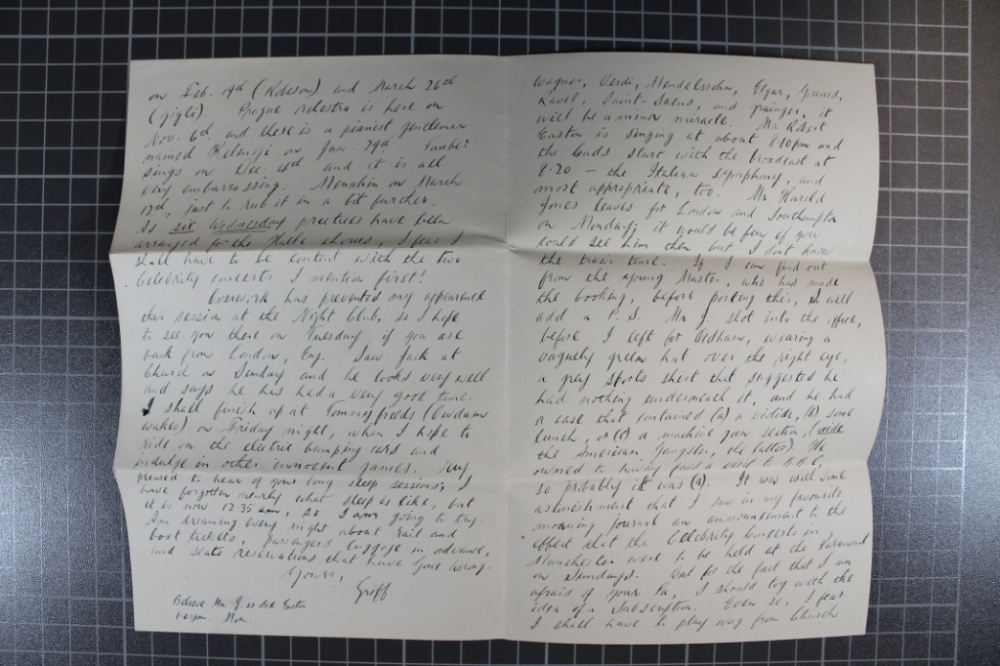 on Feb. 19th (Robeson) and March 26th
(Gigli). Prague orchestra is here on
Nov. 6th and there is a pianist gentleman
named on Jan. 29th. Tauber
sings on Dec. 4th and it is all
very embarrassing. Menuhin on March
12th, just to rub it in a bit further.
As six Wednesday practices have been
arranged for the Halle chorus, I fear I
shall have to be content with the two
Celebrity concerts I mention first!
Overwork has prevented my appearance
this session at the Night Club, so I hope
to see you there on Tuesday, if you are
back from London, Eng. Saw Jack at
Church on Sunday and he looks very well
and says he has had a very good time.
I shall finish up at Tommyfields (Owdam
wakes) on Friday night, when I hope to
ride on the electric bumping cars and
indulge in other innocent games. Very
pleased to hear of your long sleep sessions; I
have forgotten nearly what sleep is like, but
it is now 12-35 am, so I am going to try.
Am dreaming every night about rail and
boat tickets, passengers luggage in advance,
and seats reservations that have gone wrong.
Yours,
Griff.
Believe Mr J. is due Euston
1-0 pm. Mon.
Wagner, Verdi, Mendelssohn, Elgar, Gounod,
Ravel, Saint-Saens, and Grainger, it
will be a minor miracle. Mr Robert
Easton is singing at about 8-10 pm and
the lads start with the broadcast at
8-20 – the Italian Symphony, and
most appropriate, too. Mr Harold
Jones leaves for London and Southampton
on Monday; it would be fun if you
could see him then but I don't know
the train time. If I can find out
from the young Master, who has made
the booking, before posting this, I will
add a P.S. Mr J. shot into the office,
before I left for Oldham, wearing a
vaguely green hat over the right eye,
a grey sports shirt that suggested he
had nothing underneath it, and he had
a case that contained (a) a violin, (b) some
lunch, or (c) a machine gun section, (vide
the American gangster, old fellow). He
owned to having paid a visit to B.B.C,
so probably it was (a). It was with some
astonishment that I saw in my favourite
morning journal an announcement to the
effect that the Celebrity Concerts in
Manchester were to be held at the Paramount
on Sundays. But for the fact that I am
afraid of your Pa, I should toy with the
idea of a Subscription. Even so, I fear
I shall have to play wag from Church